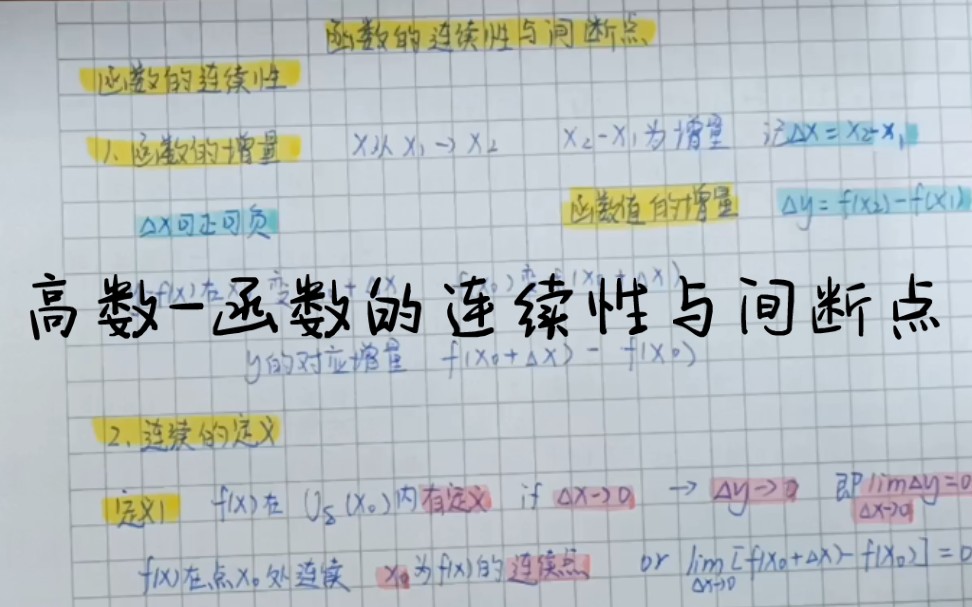 函数的连续性与间断点
函数的连续性
1、函数的增量 X从 X₁→X₂ X₂-X₁为增量 记ΔX=X₂-X₁
ΔX可正可负 函数值的增量 Δy=f(X₂)-f(X₁)
高数-函数的连续性与间断点
y的对应增量 f(X₀+ΔX)-f(X₀)
2、连续的定义
定义1 f(X)在 Uδ(X₀)内有定义 if ΔX→0 → Δy→0 即 lim Δy=0
ΔX→0
f(X)在点X₀处连续 X₀为f(X)的连续点 or lim [f(X₀+ΔX)-f(X₀)]=0
ΔX→0